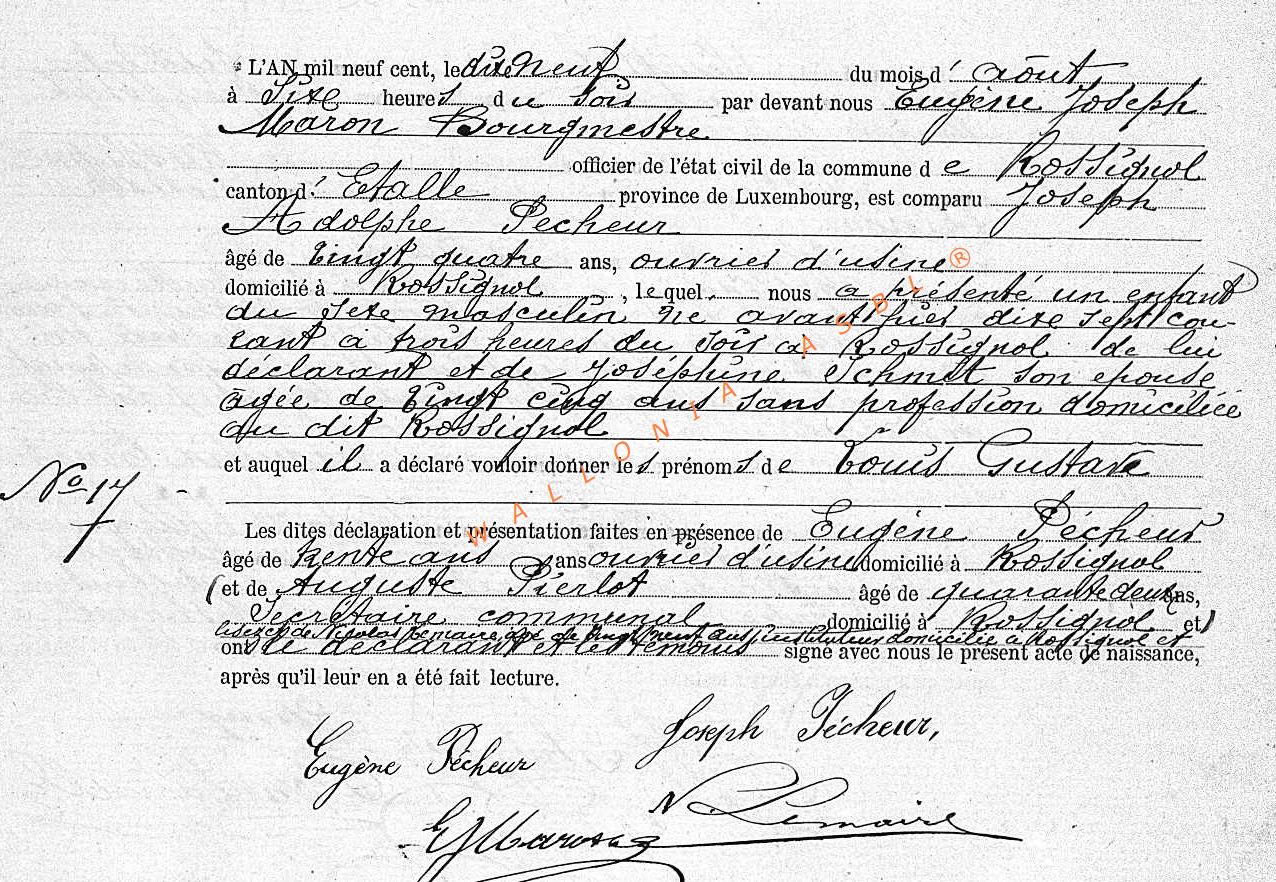 L'AN mil neuf cent, le dix neuf du mois d' août,
à Six heures du soir par devant nous Eugène Joseph
Maron Bourgmestre
officier de l'état civil de la commune de Rossignol
canton d' Etalle province de Luxembourg, est comparu Joseph
Adolphe Pecheur
âgé de Vingt quatre ans, ouvrier d'usine
domicilié à Rossignol, lequel nous a présenté un enfant
du sexe masculin né avant hier dix sept cou-
rant à trois heures du soir à Rossignol de lui
déclarant et de Joséphine Schmit son épouse
âgée de Vingt cinq ans sans profession domiciliée
au dit Rossignol
et auquel il a déclaré vouloir donner les prénoms de Louis Gustave
No 17
Les dites déclaration et présentation faites en présence de Eugène Pécheur
âgé de trente ans ans ouvrier d'usine domicilié à Rossignol
(et de Auguste Pierlot âgé de quarante deux ans,
Secrétaire communal domicilié à Rossignol et)
lisez et de Nicolas Lemaire, âgé de vingt neuf ans, instituteur domicilié à Rossignol et
ont le déclarant et les témoins signé avec nous le présent acte de naissance,
après qu'il leur en a été fait lecture.
Joseph Pécheur,
Eugène Pécheur
N Lemaire
EJMaron
WALLONIA ASBL ®